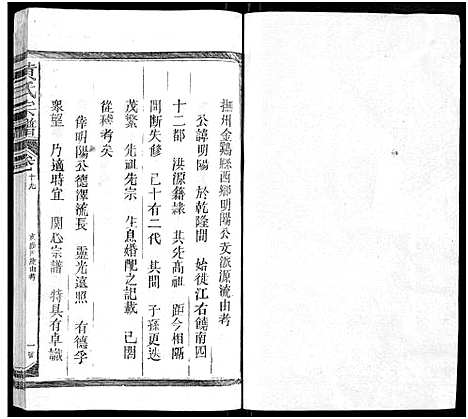 撫州金鷄縣西鄉明陽公支派源流由考
公諱明陽 於乾隆間 始徙江右饒南四
十二都 洪源籍隸 其先高祖 距今相隔
間斷失修 已十有二代 其間 子孫更迭
茂繁 先祖先宗 生息婚配之記載 已閣
從稽考矣
倖明陽公德澤流長 靈光遠照 有德孚
衆望 乃適時宜 関心宗譜 特具有卓識
黃氏宗譜
卷十九
一